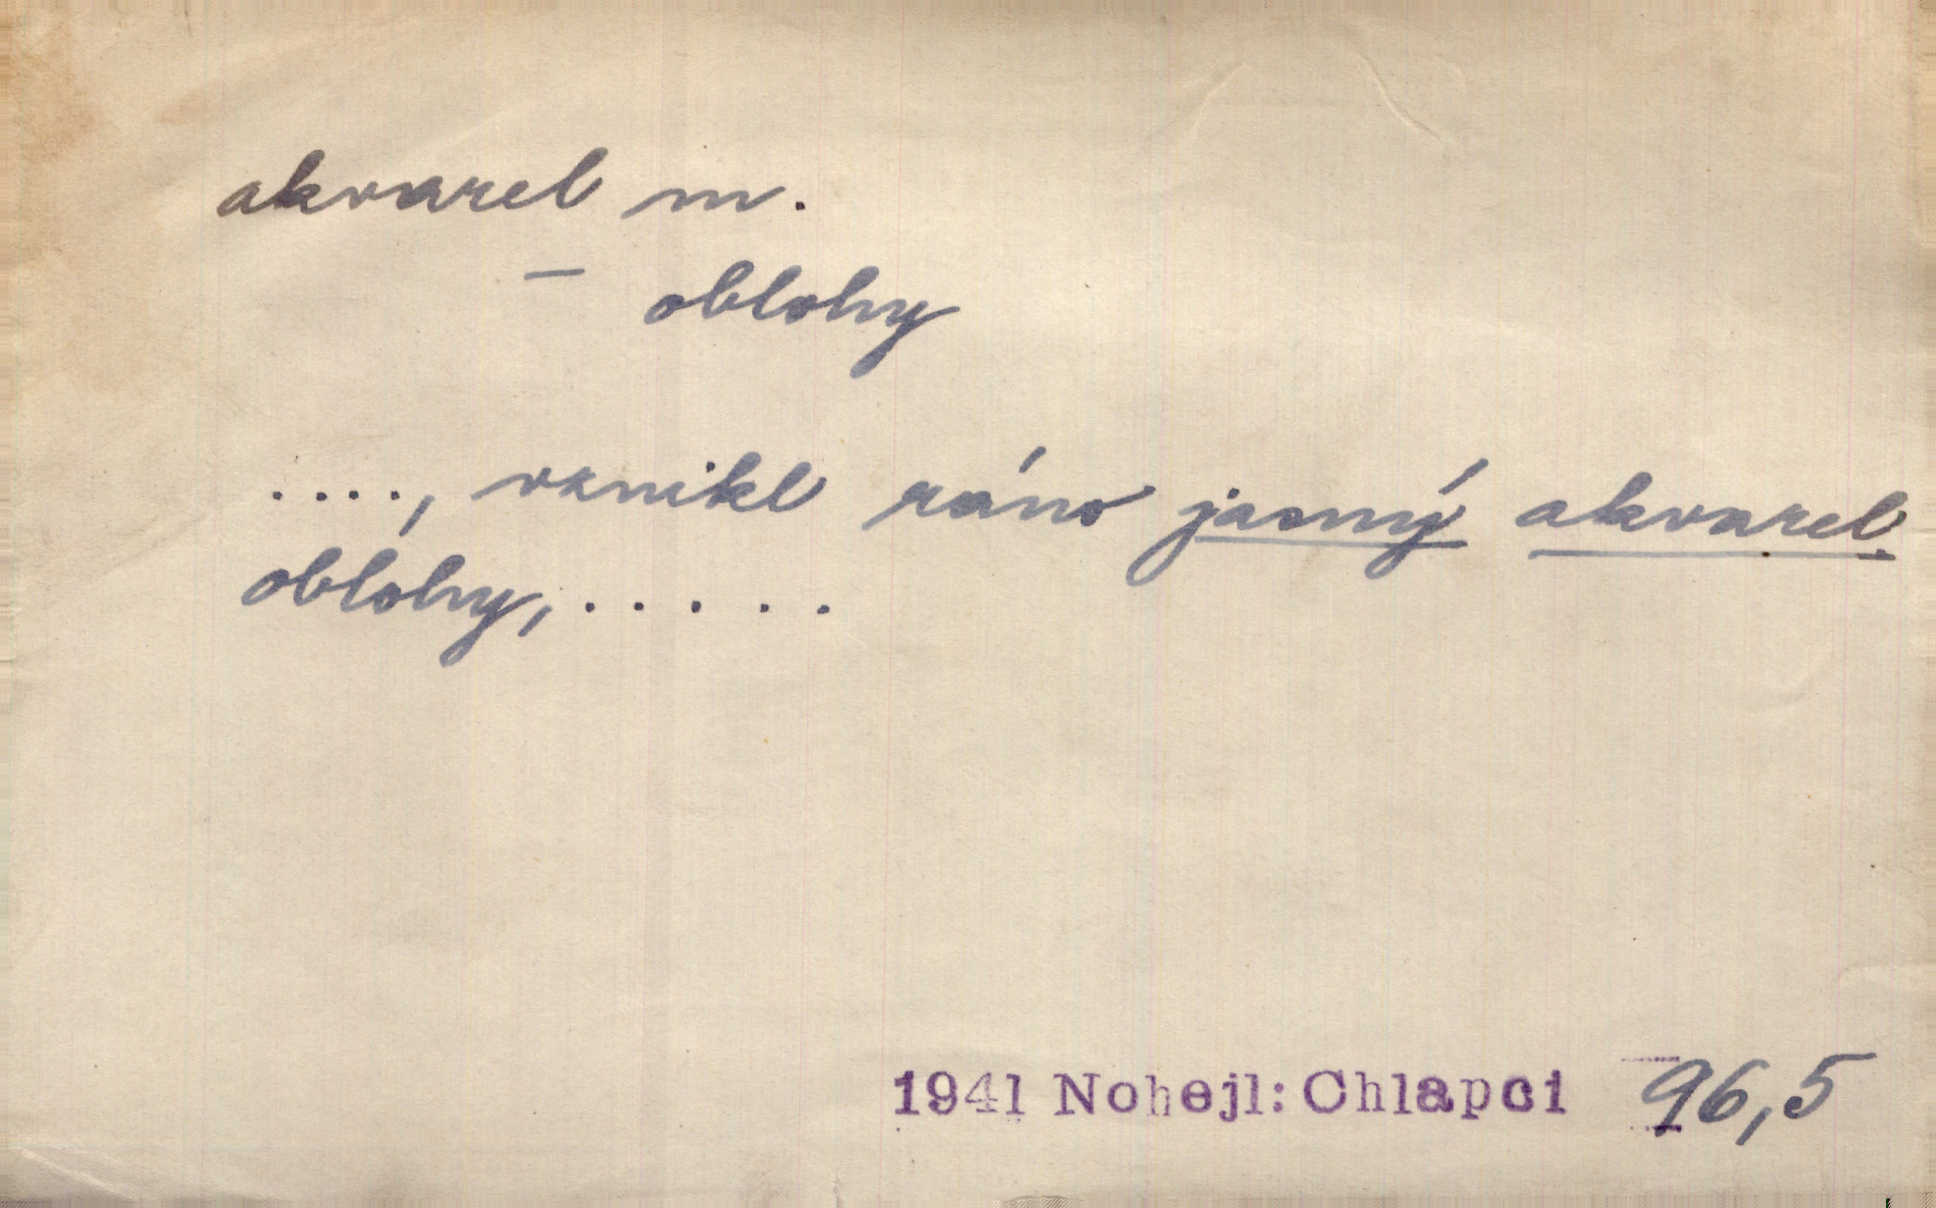 akvarel m.
— oblohy
...., vznikl ráno jasný akvarel
oblohy, .....
1941 Nohejl: Chlapci 96,5